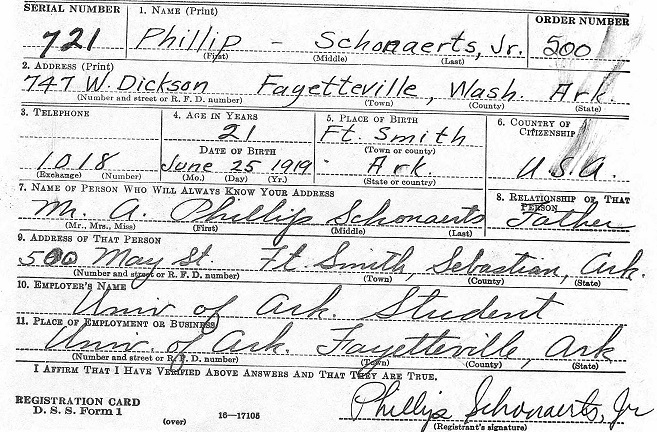 SERIAL NUMBER 1. NAME (Print) ORDER NUMBER
721 Phillip - Schonaerts, Jr. 500
(First) (Middle) (Last)
2. ADDRESS (Print)
747 W. Dickson Fayetteville, Wash. Ark.
(Number and street or R. F. D. number) (Town) (County) (State)
3. TELEPHONE 4. AGE IN YEARS 5. PLACE OF BIRTH 6. COUNTRY OF CITIZENSHIP
21 Ft. Smith
DATE OF BIRTH (Town or county)
1018 June 25 1919 Ark. U.S.A.
(Exchange) (Number) (Mo.) (Day) (Yr.) (State or country)
7. NAME OF PERSON WHO WILL ALWAYS KNOW YOUR ADDRESS 8. RELATIONSHIP OF THAT PERSON
Mr. A. Phillip Schonaerts Father
(Mr., Mrs., Miss) (First) (Middle) (Last)
9. ADDRESS OF THAT PERSON
500 May St. Ft. Smith, Sebastian, Ark.
(Number and street or R. F. D. number) (Town) (County) (State)
10. EMPLOYER'S NAME
Univ of Ark Student
11. PLACE OF EMPLOYMENT OR BUSINESS
Univ. of Ark. Fayetteville, Ark
(Number and street or R. F. D. number) (Town) (County) (State)
I AFFIRM THAT I HAVE VERIFIED ABOVE ANSWERS AND THAT THEY ARE TRUE.
REGISTRATION CARD
D. S. S. Form 1 (over) 16—17105 Phillip Schonaerts, Jr
(Registrant's signature)